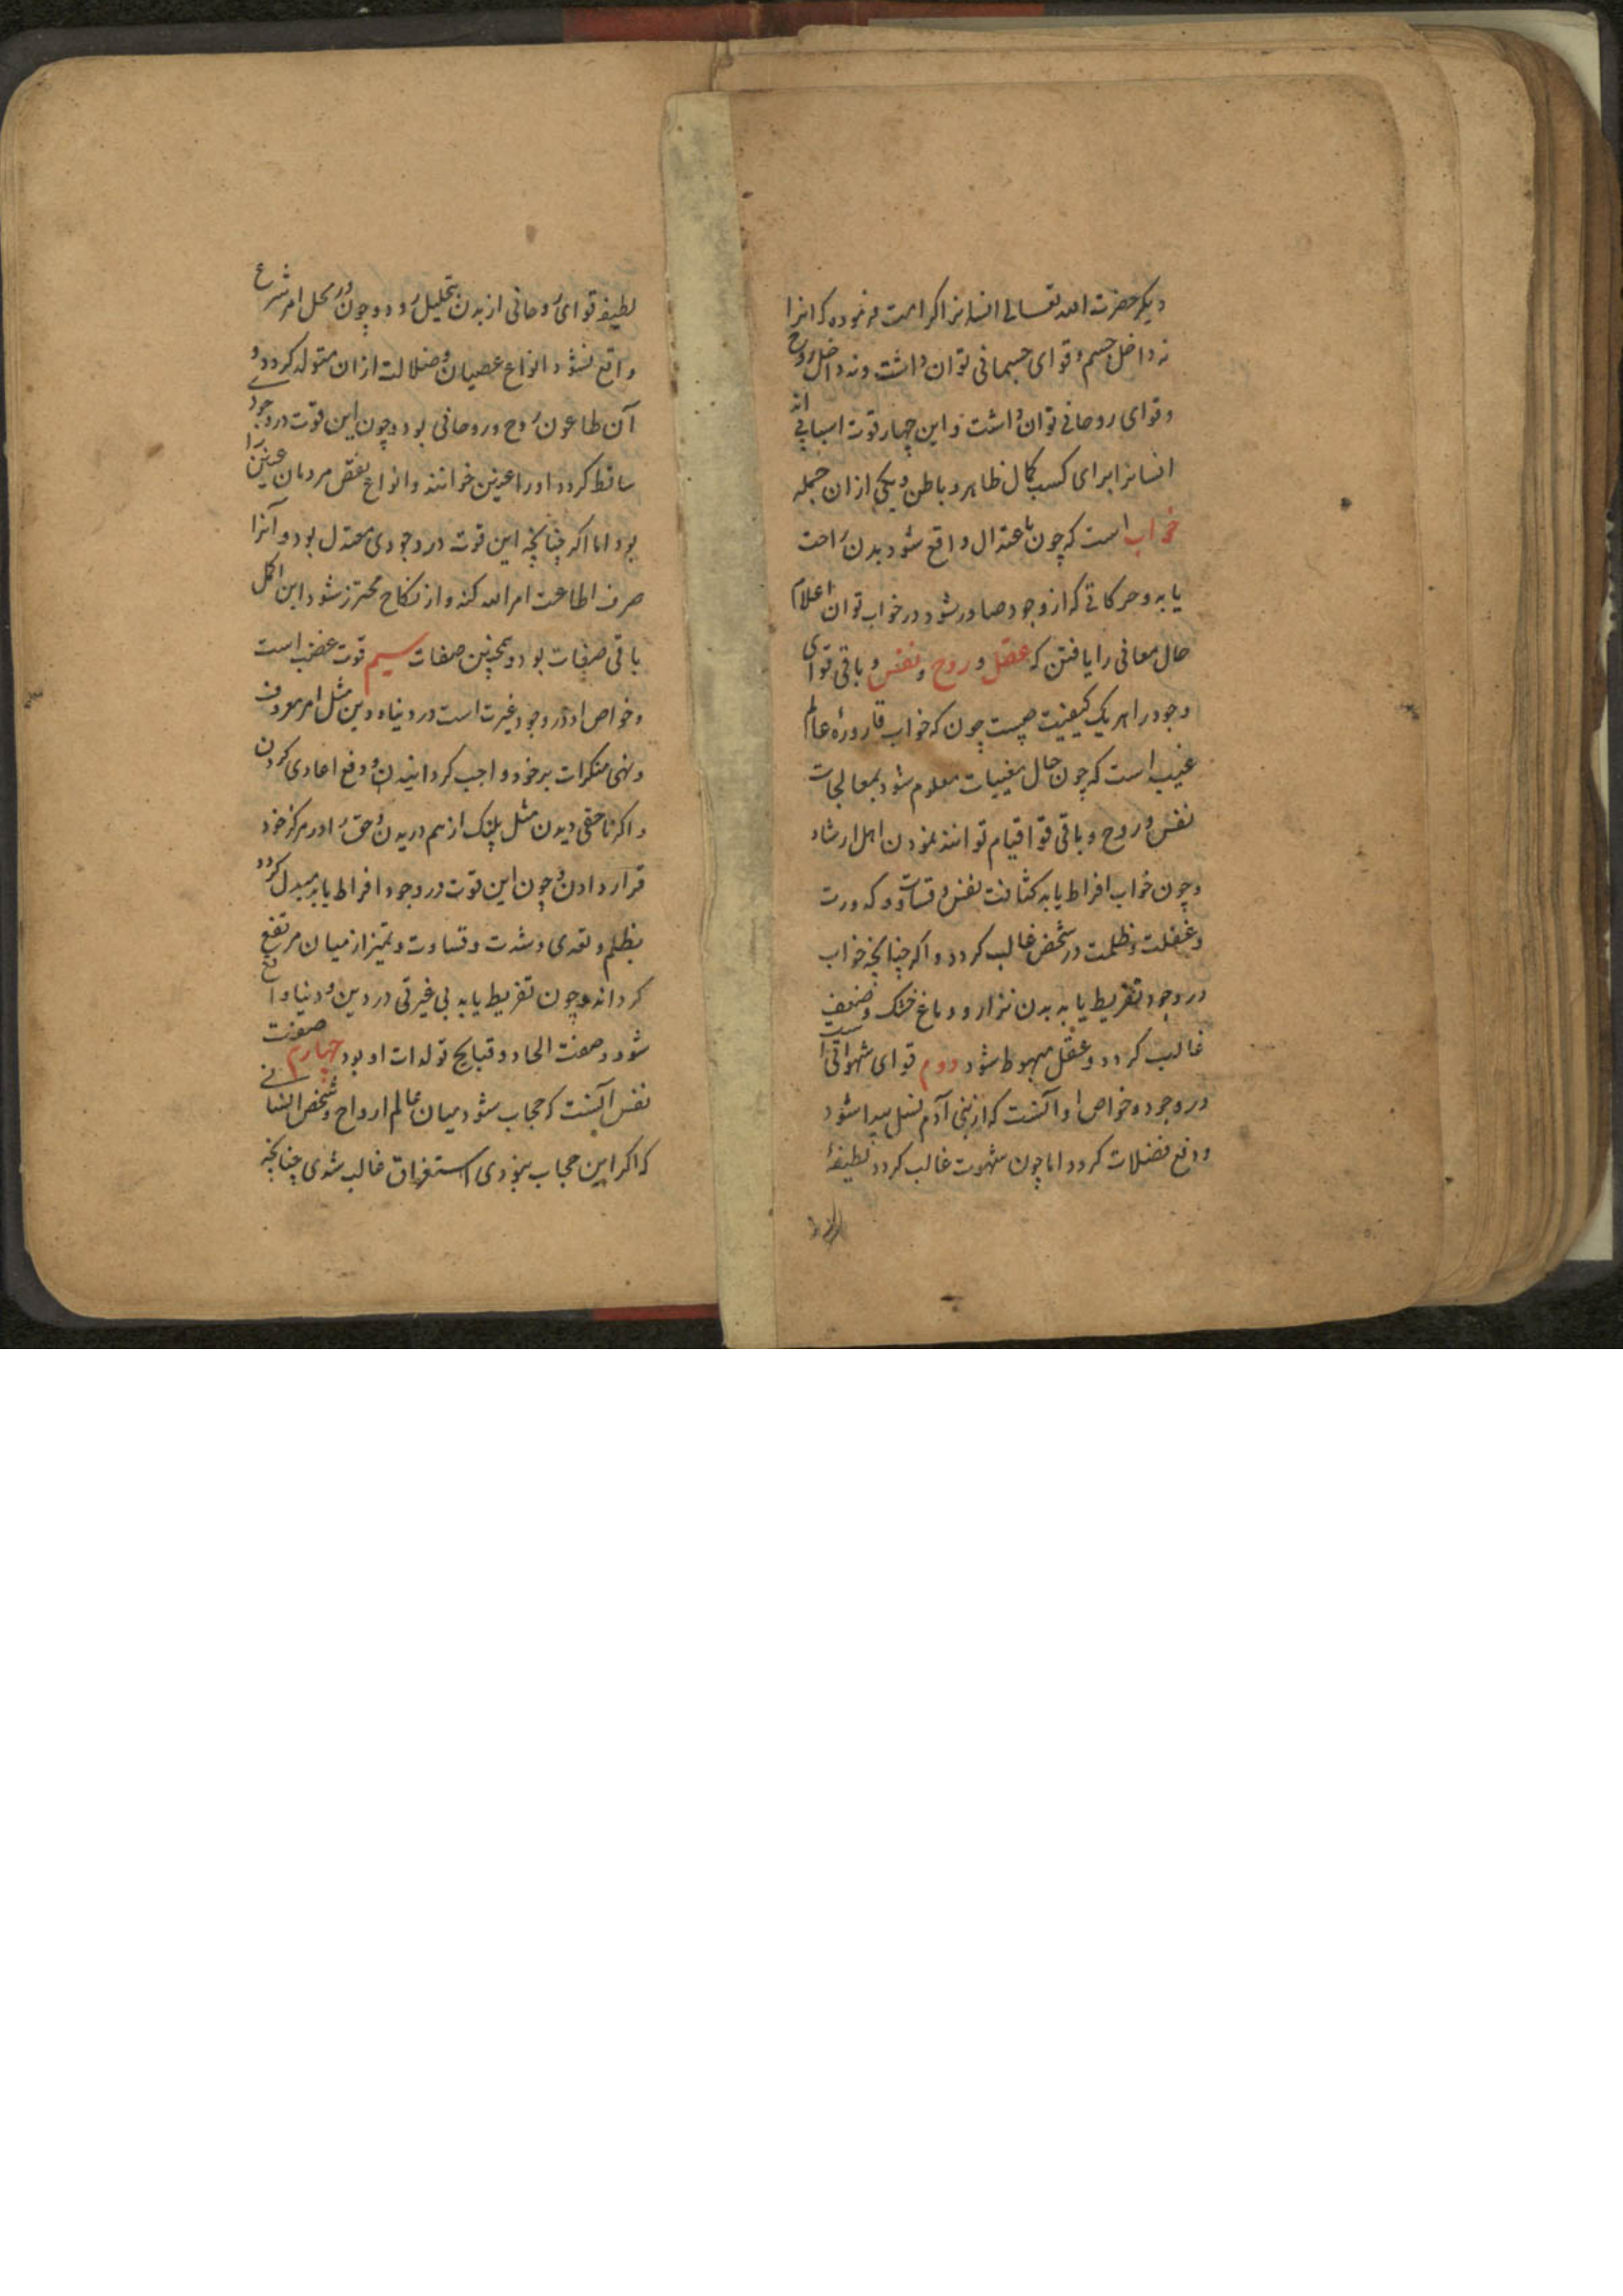 دیکر حضرت الله تعالی انسانرا کرامت فرموده که انرا
نه داخل جسم و قوای جسمانی توان داشت و نه داخل روح
و قوای روحانی توان داشت و این چهار قوت اسبابی اند
انسانرا برای کسب کمال ظاهر و باطن و یکی از ان جمله
خواب است که چون باعتدال واقع شود بدن راحت
یابد و حرکاتی که از وجود صادر شود در خواب توان اعلام
حال معانی را یافتن که عقل و روح و نفس و باقی قوای
وجود را هر یک کیفیت چیست چون که خواب قاروره عالم
غیب است که چون حال مغیبات معلوم شود بمعالجات
نفس و روح و باقی قوا قیام توانند نمودن اهل ارشاد
و چون خواب افراط یابد کثافت نفس و قساوت و کدورت
و غفلت و ظلمت در شخص غالب کردد و اکر چنانچه خواب
در وجود تفریط یابد بدن نزار و دماغ خشک و ضعیف
غالب کردد و عقل مهبوط شود دوم قوای شهوانی است
در وجود و خواص او آنست که از بنی آدم نسل پیدا شود
و دفع فضلات کردد اما چون شهوت غالب کردد لطیفهٔ
لطیفه قوای روحانی از بدن بتحلیل رود و چون در محل امر شرع
واقع نشود انواع عصیان و ضلالت ازان متولد کردد و
آن طاعون روح و روحانی بود و چون این قوت در وجود
ساقط کردد اورا عنین خوانند و انواع نقص مردمان عنین را
بود اما اکر چنانچه این قوت در وجودی معتدل بود و آنرا
صرف اطاعت امر الله کند و از نکاح محترز شود این اکمل
باقی صفات بود و همچنین صفات سیم قوت غضب است
و خواص او در وجود غیرت است در دنیا و دین مثل امر معروف
و نهی منکرات بر خود واجب کردانیدن و دفع اعادی کردن
و اکر ناحقی دیدن مثل پلنک از هم دریدن و حق را در مرکز خود
قرار دادن و چون این قوت در وجود افراط یابد مبدل کردد
بظلم و تعدی و شدت و قساوت و تمیز از میان مرتفع
کرداند و چون تفریط یابد بی غیرتی در دین و دنیا واقع
شود و صفت الحاد و قبایح تولدات او بود چهارم صفت
نفس آنست که حجاب شود میان عالم ارواح و شخص انسانی
که اکر این حجاب نبودی استغراق غالب شدی چنانچه